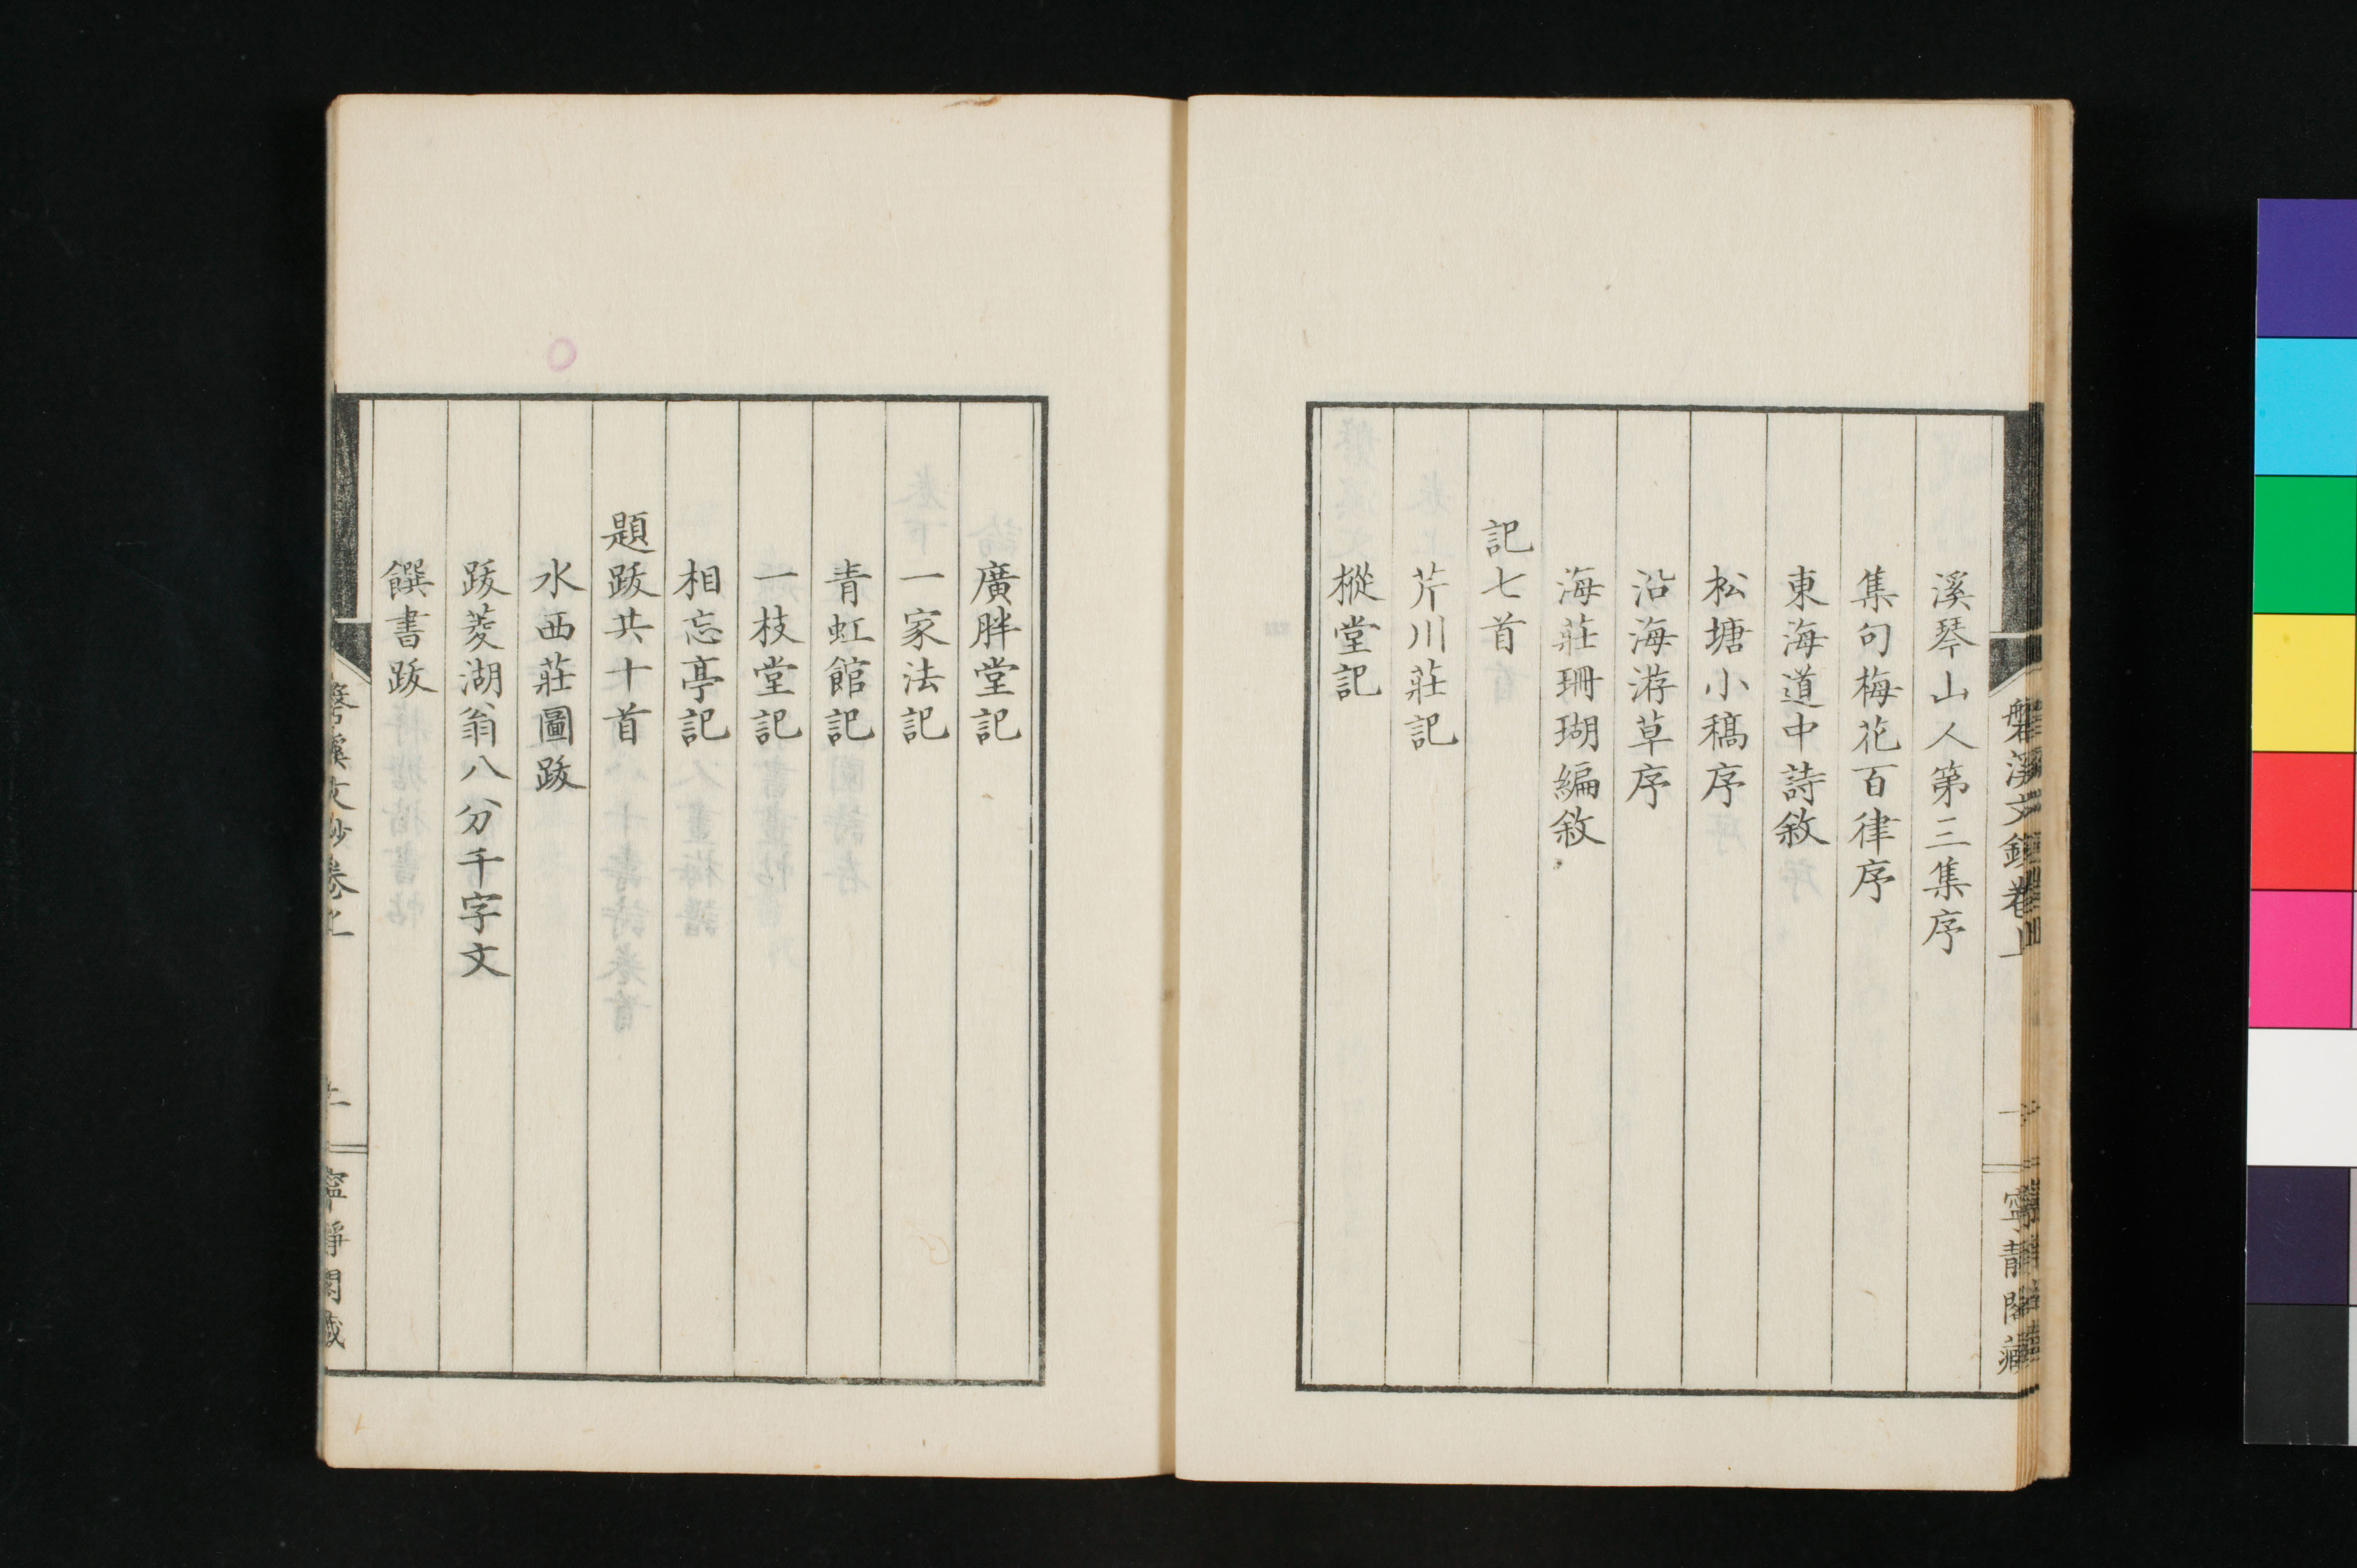 溪琴山人第三集序
集句梅花百律序
東海道中詩敘
松塘小稿序
沿海游草序
海莊珊瑚編敘
記七首
芹川莊記
樅堂記
磐溪文鈔卷上
一
寧靜閣藏
廣胖堂記
一家法記
青虹館記
一枝堂記
相忘亭記
題跋共十首
水西莊圖跋
跋菱湖翁八分千字文
饌書跋
磐溪文鈔卷上
寧靜閣藏